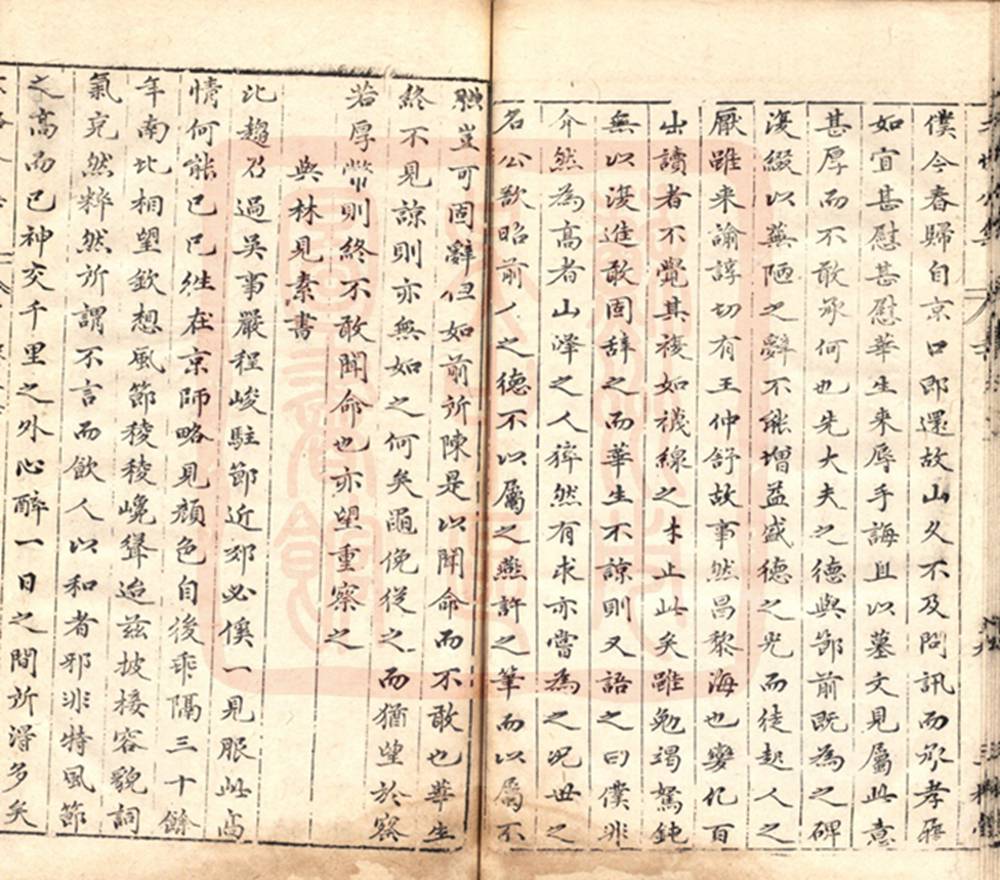 僕今春歸自京口即還故山久不及問訊而承孝履
如宜甚慰甚慰華生来辱手誨且以墓文見屬此意
甚厚而不敢承何也先大夫之德與鄒前既為之碑
復綴以蕪陋之辭不能增益盛德之光而徒起人之
厭雖来諭諄切有王仲舒故事然昌黎海也變化百
出讀者不覺其複如襪線之才止此矣雖勉竭駑鈍
無以復進敢固辭之而華生不諒則又語之曰僕非
介然為高者山澤之人猝然有求亦嘗為之况世之
名公欲昭前人之德不以屬之燕許之筆而以屬不
腆豈可固辭但如前所陳是以聞命而不敢也華生
終不見諒則亦無如之何矣黽俛從之而猶望於察
若厚幣則終不敢聞命也亦望重察之
與林見素書
比趨召過吳事嚴程峻駐節近郊必俟一見服此高
情何能已已往在京師略見顏色自後乖隔三十餘
年南北相望欽想風節稜稜巉聳迨茲披接容貌詞
氣充然粹然所謂不言而飲人以和者邪非特風節
之高而已神交千里之外心醉一日之間所得多矣